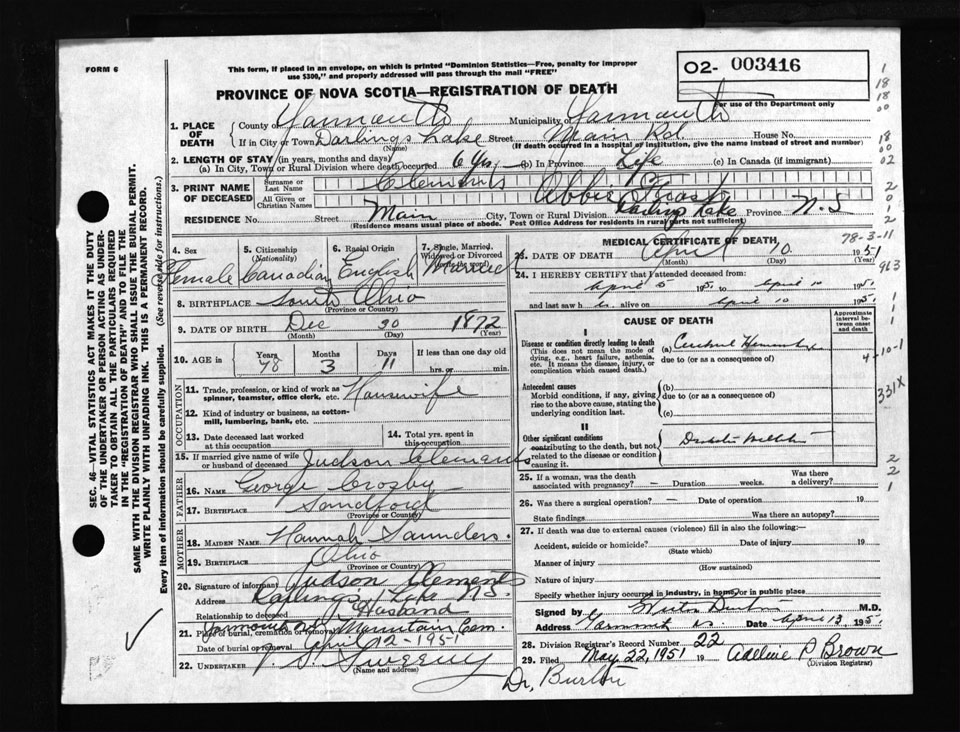 FORM 6
This form, if placed in an envelope, on which is printed "Dominion Statistics—Free, penalty for improper
use $300," and properly addressed will pass through the mail "FREE"
O2- 003416
For use of the Department only
PROVINCE OF NOVA SCOTIA—REGISTRATION OF DEATH
1. PLACE OF DEATH
County of Yarmouth Municipality of Yarmouth
If in City or Town Darlings Lake Street Main Rd. House No.
(Name) (If death occurred in a hospital or institution, give the name instead of street and number)
2. LENGTH OF STAY (in years, months and days)
(a) In City, Town or Rural Division where death occurred 6 Yrs (b) In Province Life (c) In Canada (if immigrant)
3. PRINT NAME OF DECEASED
Surname or Last Name Clements
All Given or Christian Names Abbie
RESIDENCE No. Street Main City, Town or Rural Division Darlings Lake Province N.S
(Residence means usual place of abode. Post Office Address for residents in rural parts not sufficient)
4. Sex
Female
5. Citizenship (Nationality)
Canadian
6. Racial Origin
English
7. Single, Married, Widowed or Divorced
Married
8. BIRTHPLACE South Ohio
(Province or Country)
9. DATE OF BIRTH Dec 30 1872
(Month) (Day) (Year)
10. AGE in
Years Months Days If less than one day old
78 3 11 hrs. or min.
OCCUPATION
11. Trade, profession, or kind of work as
spinner, teamster, office clerk, etc. Housewife
12. Kind of industry or business, as cotton-
mill, lumbering, bank, etc.
13. Date deceased last worked
at this occupation
14. Total yrs. spent in
this occupation
15. If married give name of wife
or husband of deceased Judson Clements
FATHER
16. NAME George Crosby
17. BIRTHPLACE Sandford
(Province or Country)
MOTHER
18. MAIDEN NAME Hannah Saunders.
19. BIRTHPLACE Ohio
(Province or Country)
20. Signature of informant Judson Clements
Address Darlings Lake N.S.
Relationship to deceased Husband
21. Place of burial, cremation or removal Yarmouth Mountain Cem.
Date of burial or removal April 12-1951
22. UNDERTAKER Sweeny
(Name and address)
MEDICAL CERTIFICATE OF DEATH
78-3-11
23. DATE OF DEATH April 10 1951
(Month) (Day) (Year)
24. I HEREBY CERTIFY that I attended deceased from
April 5 1951 to April 10 1951
and last saw h alive on April 10 1951
CAUSE OF DEATH
Approximate interval between onset and death
I
Disease or condition directly leading to death
(This does not mean the mode of
dying, e.g., heart failure, asthenia,
etc. It means the disease, injury, or
complication which caused death.)
(a) Cerebral Hemorrhage
due to (or as a consequence of)
Antecedent causes
Morbid conditions, if any, giving
rise to the above cause, stating the
underlying condition last.
(b)
due to (or as a consequence of)
(c)
II
Other significant conditions
contributing to the death, but not
related to the disease or condition
causing it.
Diabetes Mellitus
25. If a woman, was the death
associated with pregnancy? — Duration weeks. Was there a delivery?
26. Was there a surgical operation? — Date of operation 19
State findings Was there an autopsy?
27. If death was due to external causes (violence) fill in also the following:—
Accident, suicide or homicide? Date of injury 19
(State which)
Manner of injury
(How sustained)
Nature of injury
Specify whether injury occurred in industry, in home or in public place
Signed by M.D.
Address Yarmouth N.S. Date April 13, 1951
28. Division Registrar's Record Number 22
29. Filed May 22, 1951 19 Adeline P Brown
(Division Registrar)
Dr, Burton
SEC. 46—VITAL STATISTICS ACT MAKES IT THE DUTY
OF THE UNDERTAKER OR PERSON ACTING AS UNDER-
TAKER TO OBTAIN ALL THE PARTICULARS REQUIRED
IN THE "REGISTRATION OF DEATH" AND TO FILE THE
SAME WITH THE DIVISION REGISTRAR WHO SHALL ISSUE THE BURIAL PERMIT.
WRITE PLAINLY WITH UNFADING INK. THIS IS A PERMANENT RECORD.
Every item of information should be carefully supplied. (See reverse side for instructions.)
1
18
18
00
18
00
02
2
0
1
2
963
1
1
1
4-10-1
331X
2
2
1